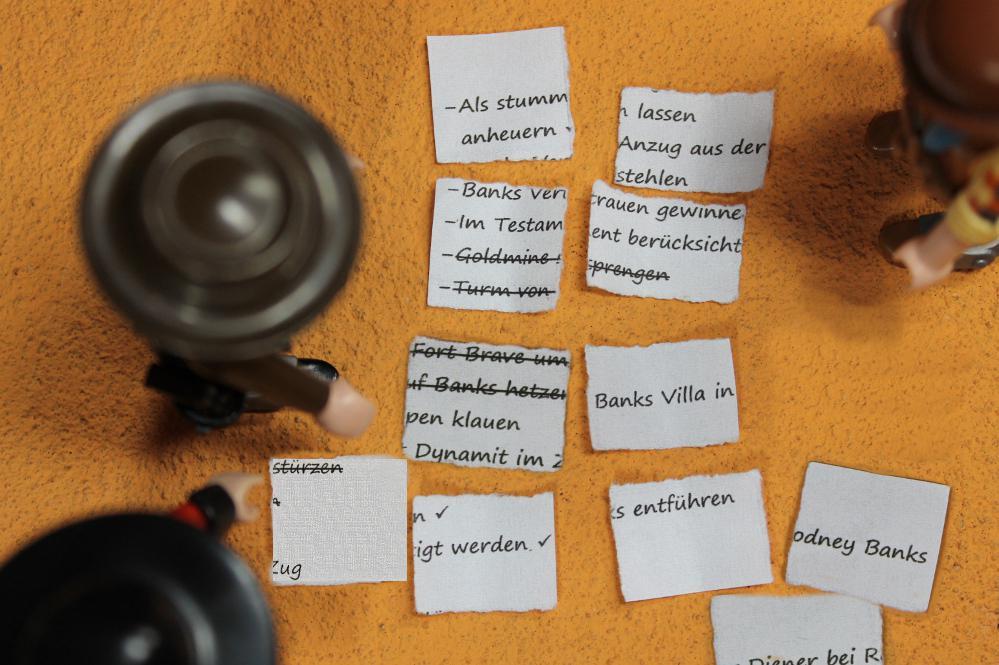 –Als stumm
anheuern
n lassen
Anzug aus der
stehlen
–Banks ver
–Im Testam
–Goldmine
–Turm von
trauen gewinne
ent berücksicht
sprengen
Fort Brave um
uf Banks hetzen
pen klauen
Dynamit im Z
Banks Villa in
stürzen
Zug
n ✓
igt werden. ✓
s entführen
odney Banks
Diener bei R